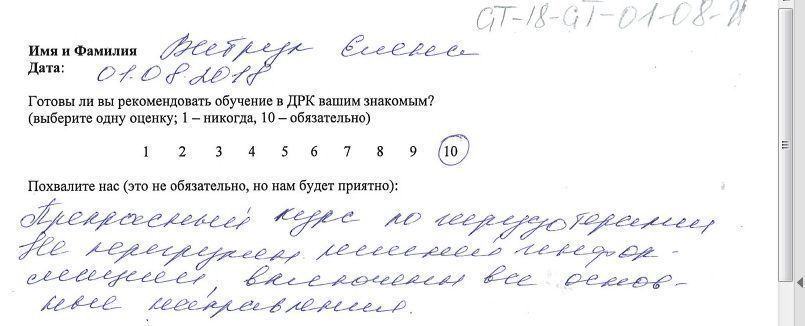 GT-18-GT-01-08-
Имя и Фамилия Елена
Дата: 01.08.2018
Готовы ли вы рекомендовать обучение в ДРК вашим знакомым?
(выберите одну оценку; 1 – никогда, 10 – обязательно)
1 2 3 4 5 6 7 8 9 10
Похвалите нас (это не обязательно, но нам будет приятно):
Прекрасный курс по гирудотерапии
Не перегружен лишней инфор-
мацией, включены все основ-
ные направления.